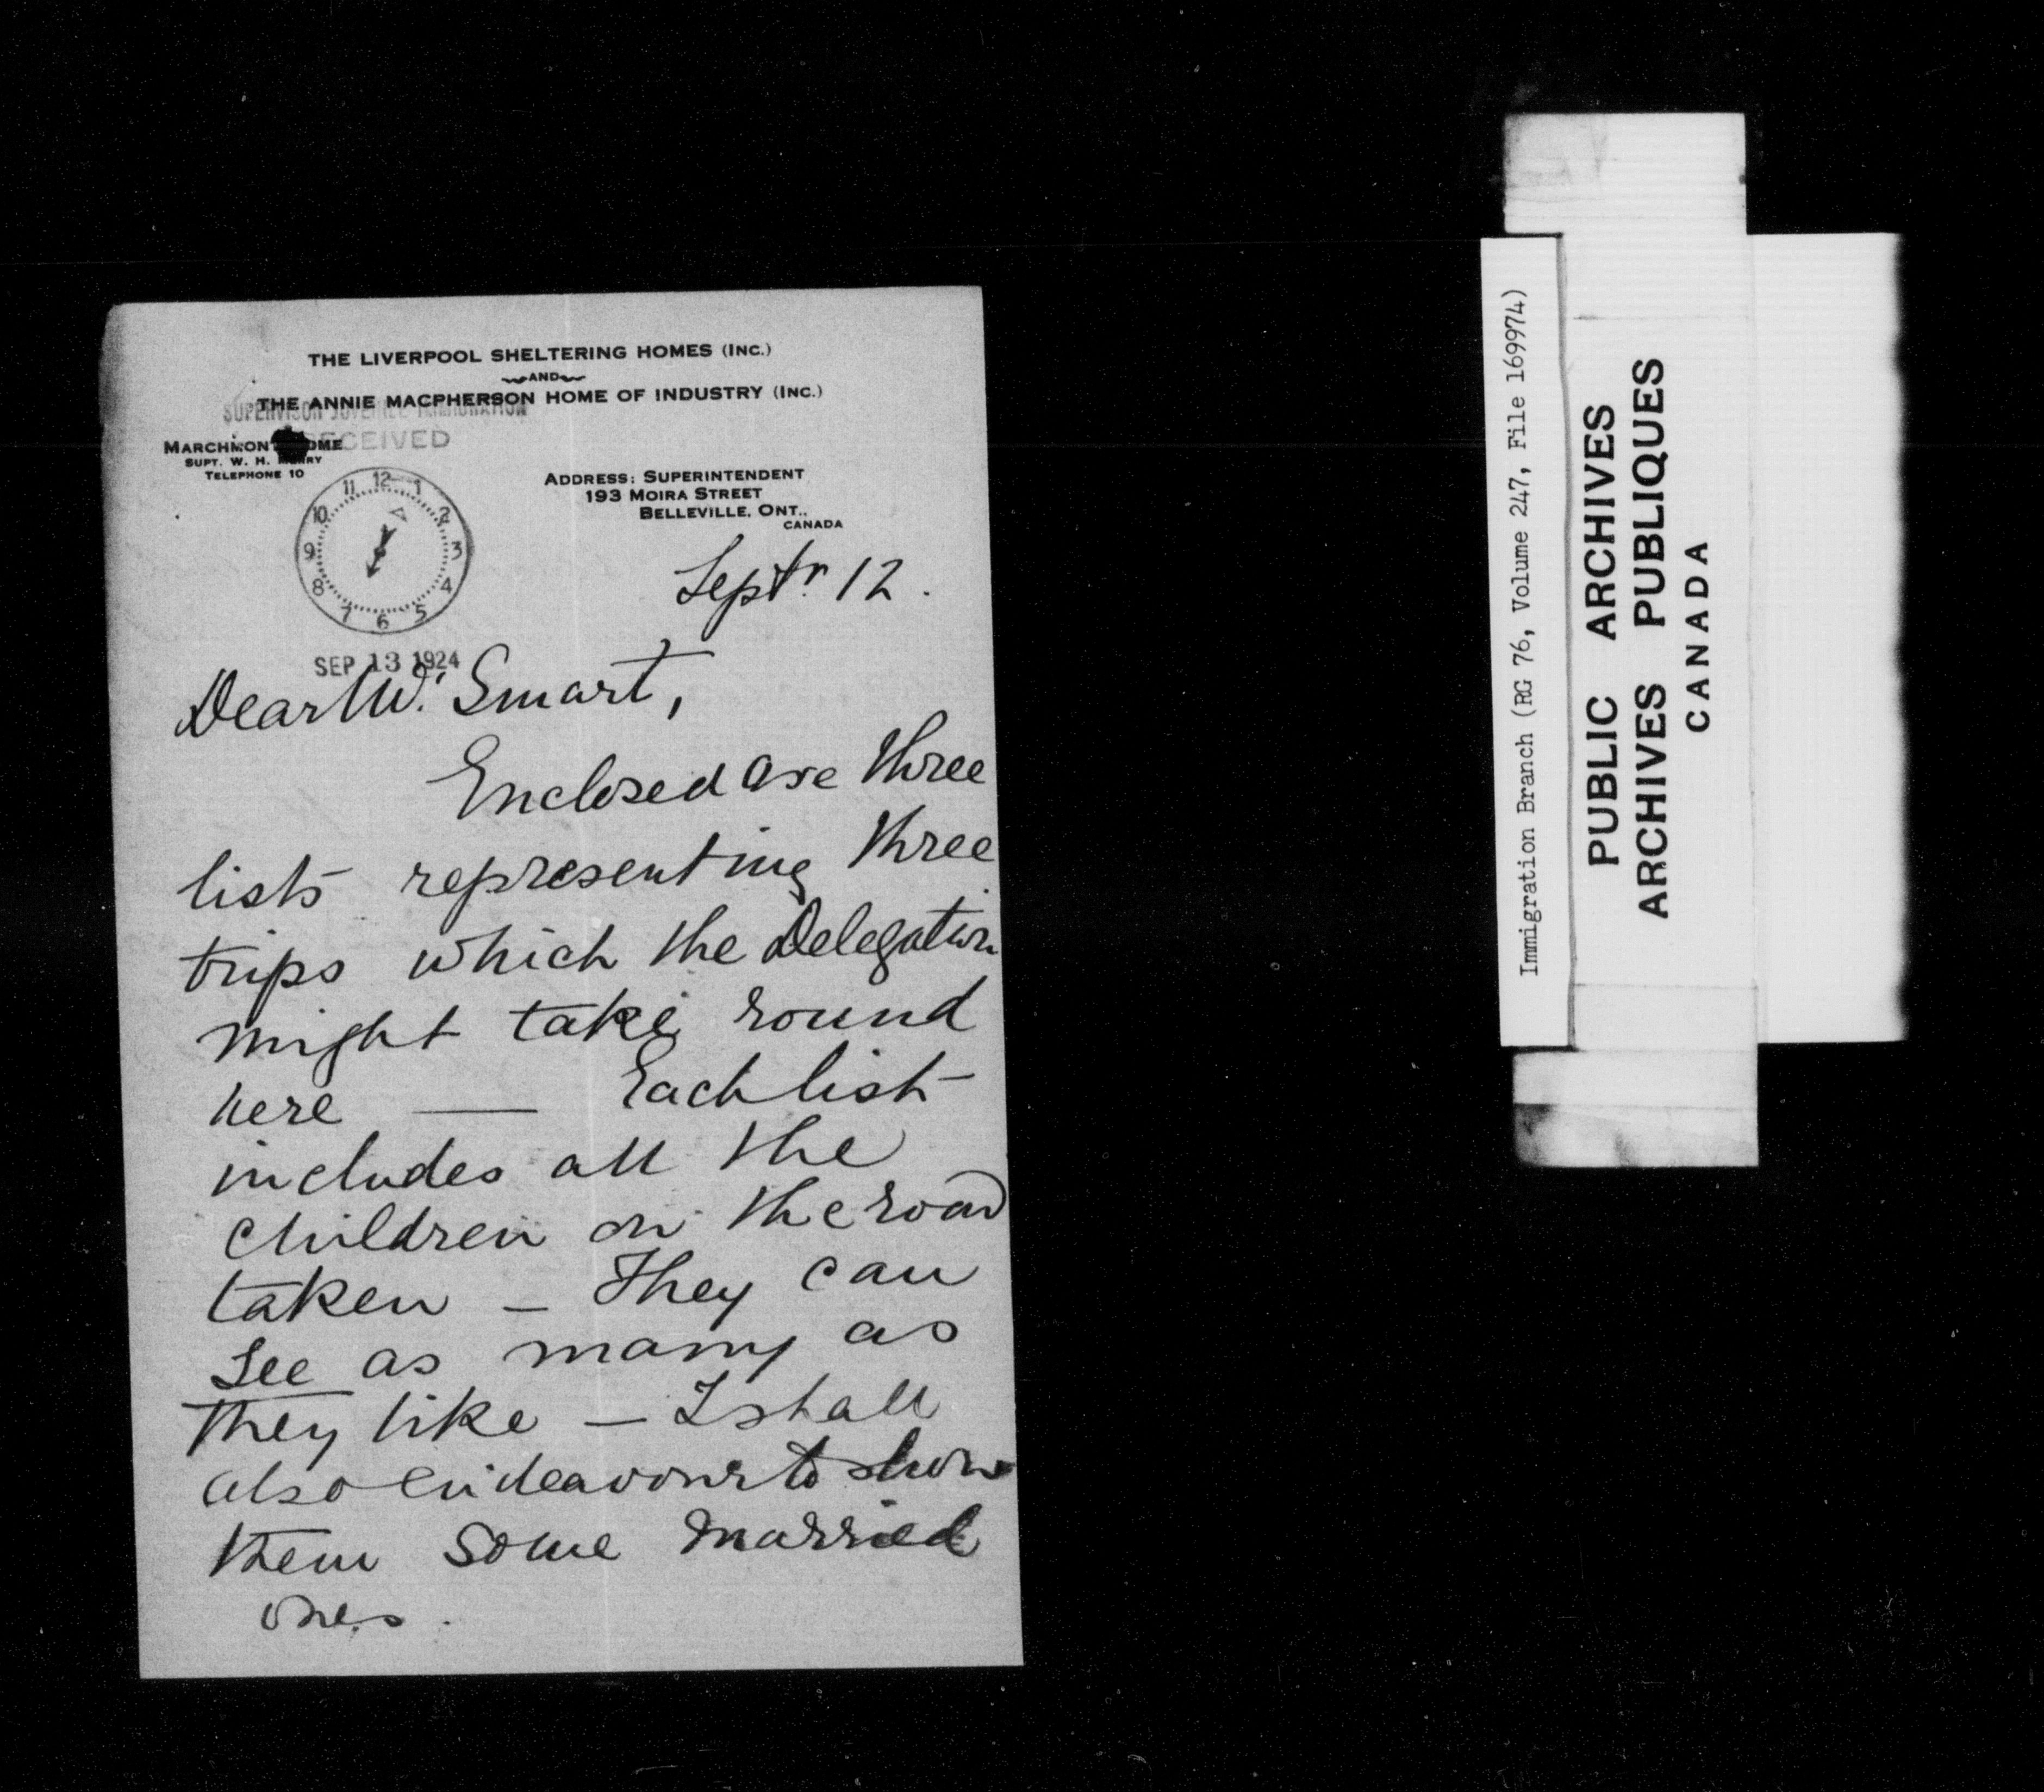 THE LIVERPOOL SHELTERING HOMES (INC.)
AND
THE ANNIE MACPHERSON HOME OF INDUSTRY (INC.)
SUPERVISOR JUVENILE IMMIGRATION
RECEIVED
MARCHMONT HOME
SUPT. W. H. MERRY
TELEPHONE 10
ADDRESS: SUPERINTENDENT
193 MOIRA STREET
BELLEVILLE, ONT.,
CANADA
12 1 2 3 4 5 6 7 8 9 10 11
SEP 13 1924
Septr 12.
Dear Mr. Smart,
Enclosed are three
lists representing three
trips which the Delegation
might take round
here — Each list
includes all the
children on the road
taken – They can
see as many as
they like – I shall
also endeavour to show
them some married
ones.
Immigration Branch (RG 76, Volume 247, File 169974)
PUBLIC ARCHIVES
ARCHIVES PUBLIQUES
CANADA